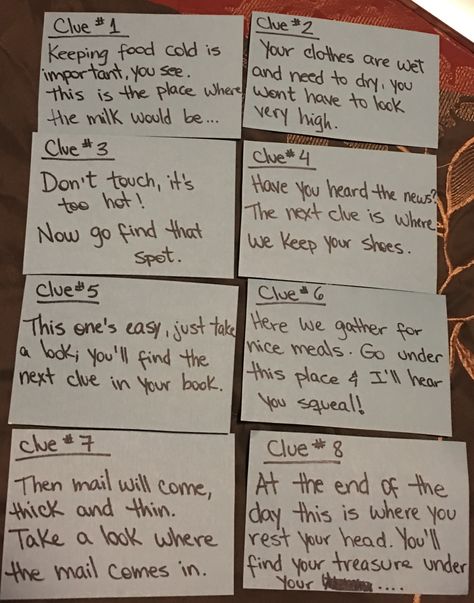 Clue #1
Keeping food cold is
important, you see.
This is the place where
the milk would be...
Clue #2
Your clothes are wet
and need to dry, you
wont have to look
very high.
Clue #3
Don't touch, it's
too hot!
Now go find that
spot.
Clue #4
Have you heard the news?
The next clue is where
we keep your shoes.
Clue #5
This one's easy, just take
a look; you'll find the
next clue in your book.
Clue #6
Here we gather for
nice meals. Go under
this place & I'll hear
you squeal!
Clue #7
Then mail will come,
thick and thin.
Take a look where
the mail comes in.
Clue #8
At the end of the
day this is where you
rest your head. You'll
find your treasure under
your ....